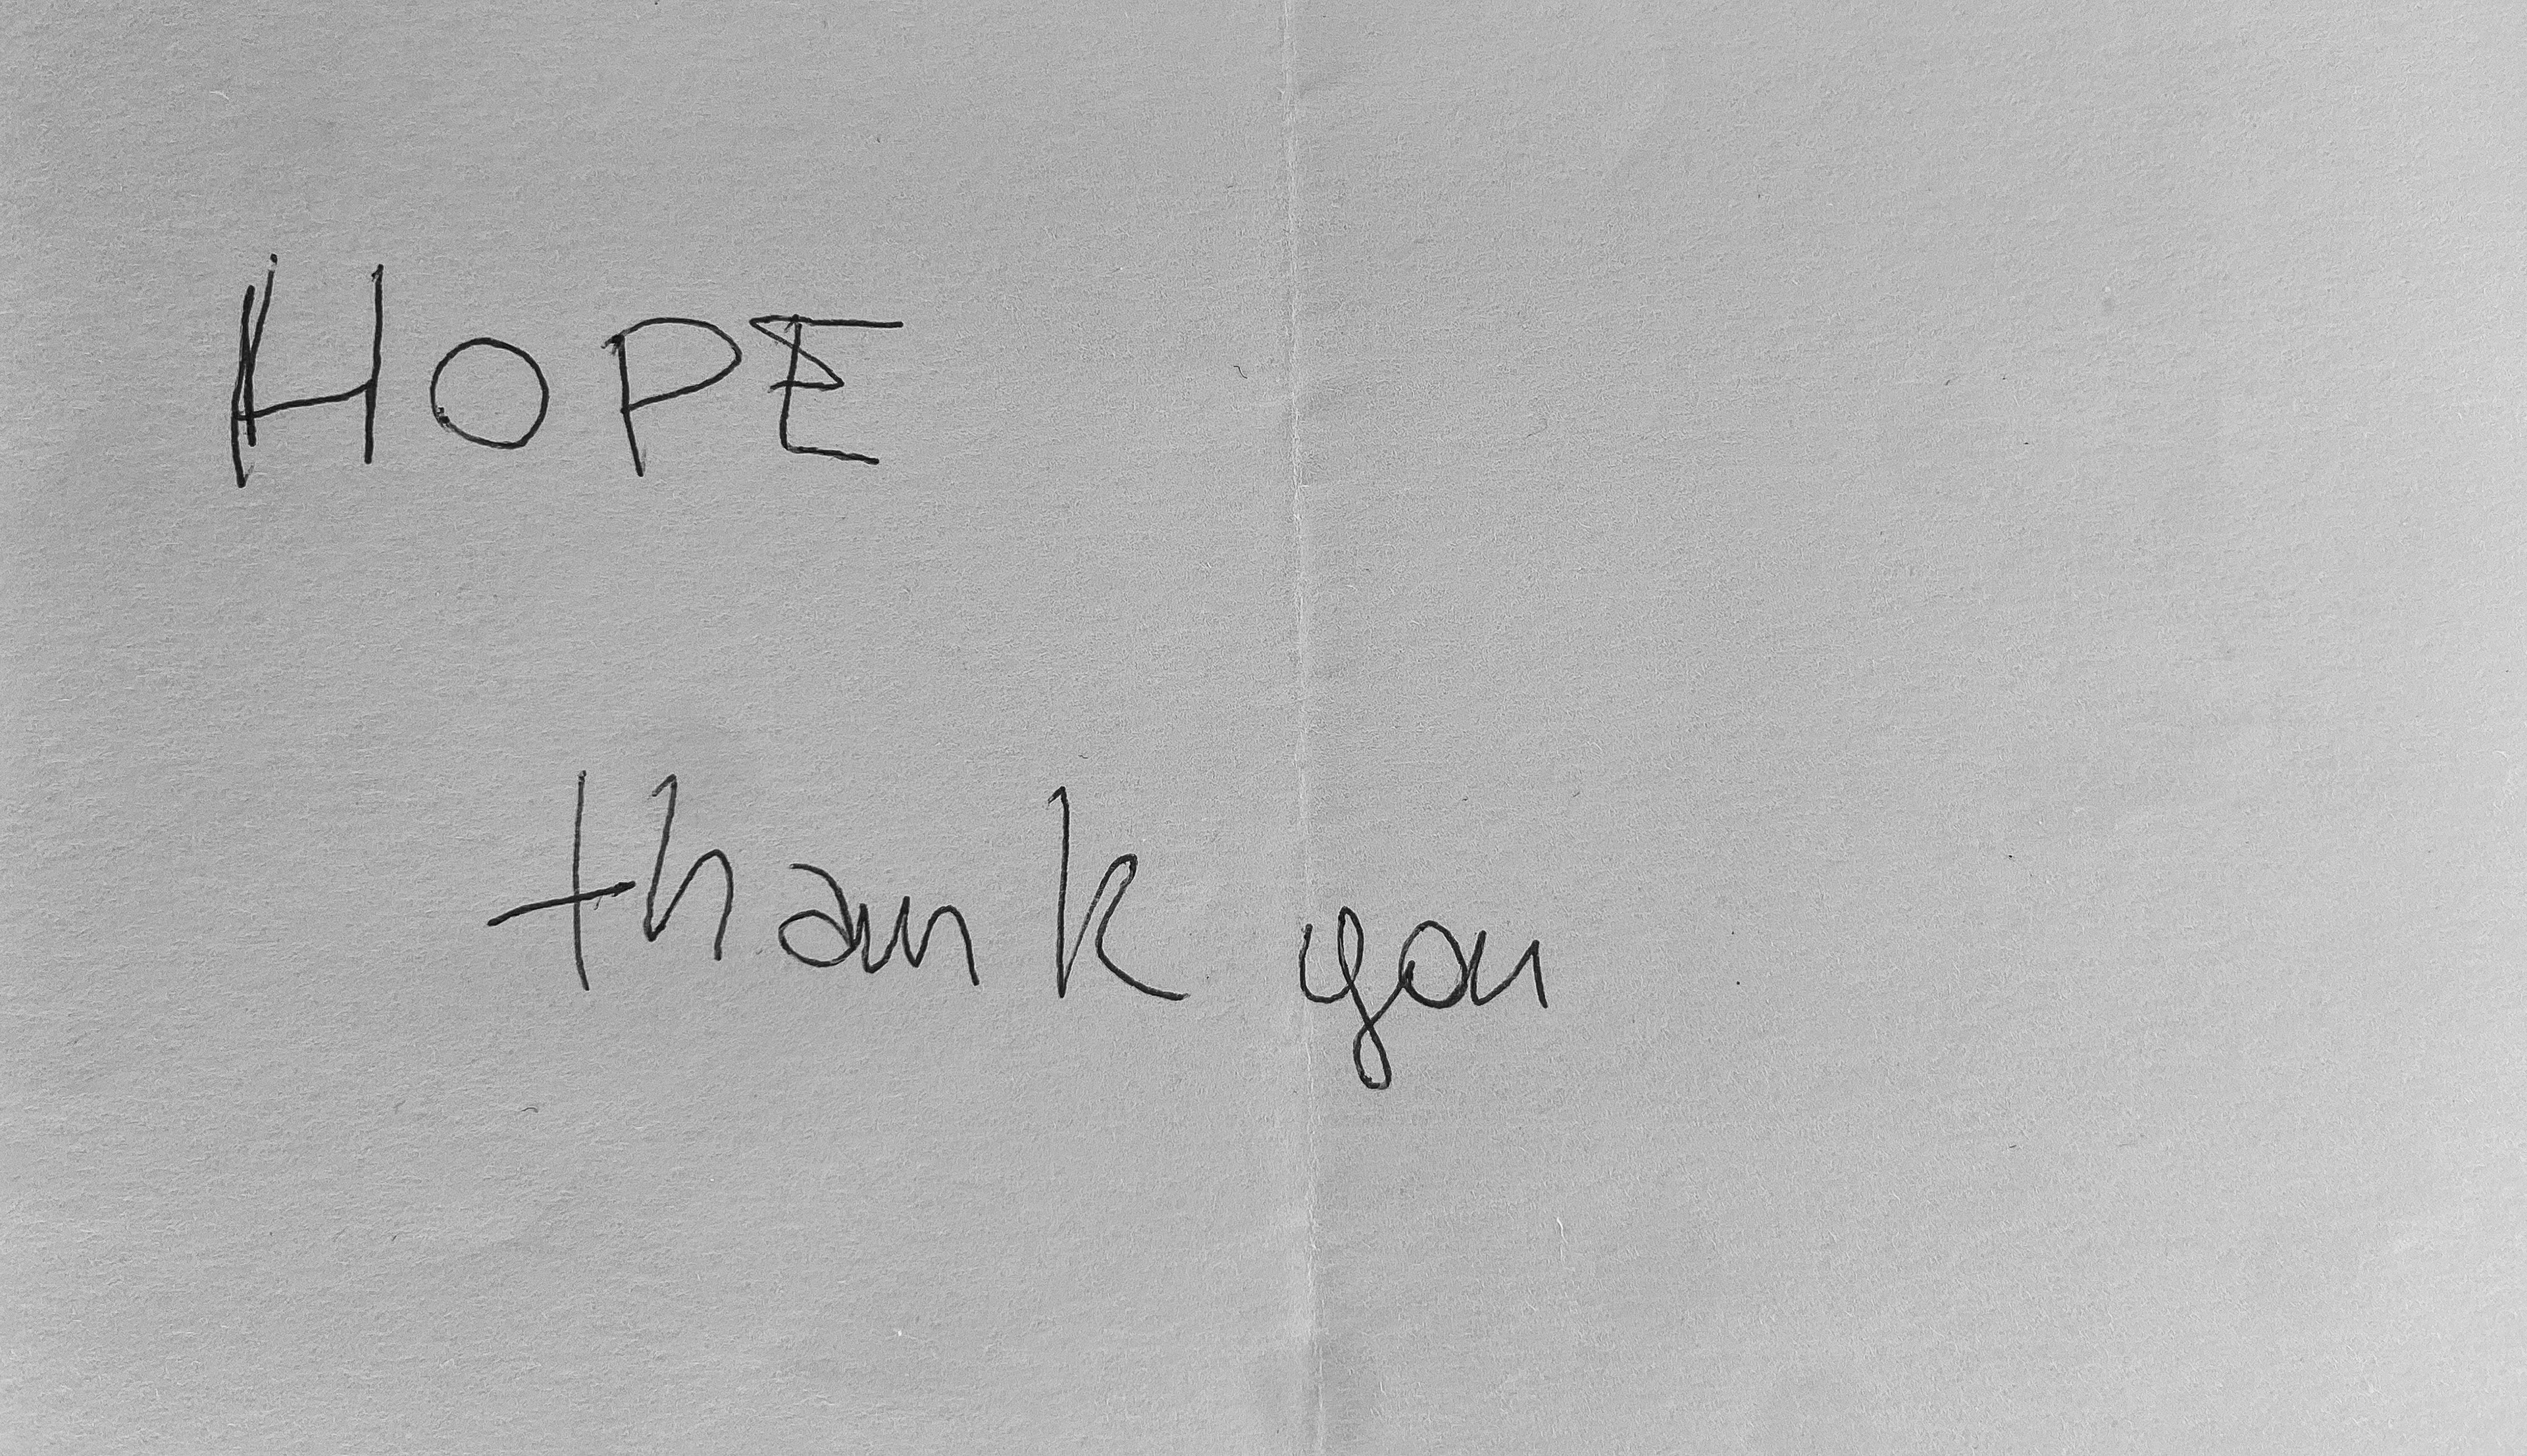 HOPE
thank you